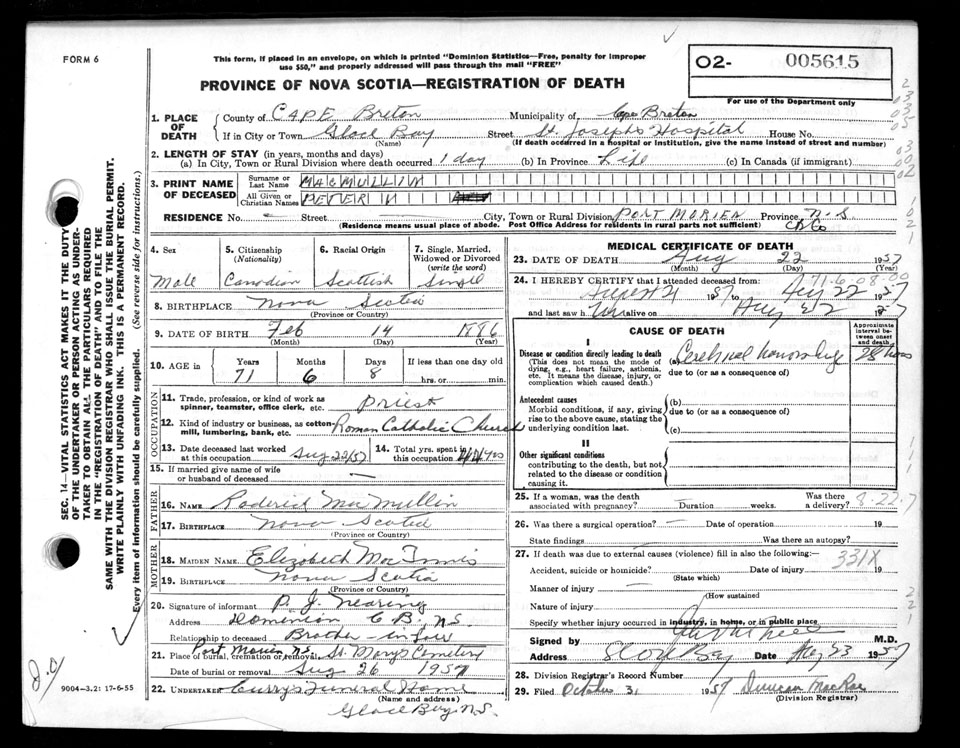 FORM 6
This form, if placed in an envelope, on which is printed "Dominion Statistics—Free, penalty for improper
use $50," and properly addressed will pass through the mail "FREE"
PROVINCE OF NOVA SCOTIA—REGISTRATION OF DEATH
O2- 005615
For use of the Department only
SEC. 14—VITAL STATISTICS ACT MAKES IT THE DUTY
OF THE UNDERTAKER OR PERSON ACTING AS UNDER-
TAKER TO OBTAIN ALL THE PARTICULARS REQUIRED
IN THE "REGISTRATION OF DEATH" AND TO FILE THE
SAME WITH THE DIVISION REGISTRAR WHO SHALL ISSUE THE BURIAL PERMIT.
WRITE PLAINLY WITH UNFADING INK. THIS IS A PERMANENT RECORD.
Every item of information should be carefully supplied. (See reverse side for instructions.)
1. PLACE OF DEATH
County of CAPE Breton Municipality of Cape Breton
If in City or Town Glace Bay Street St. Josephs Hospital House No.
(Name) (If death occurred in a hospital or institution, give the name instead of street and number)
2. LENGTH OF STAY (in years, months and days)
(a) In City, Town or Rural Division where death occurred 1 day (b) In Province Life (c) In Canada (if immigrant)
3. PRINT NAME OF DECEASED
Surname or Last Name MACMULLIN
All Given or Christian Names PETER N
RESIDENCE No. Street City, Town or Rural Division PORT MORIEN Province N-S
(Residence means usual place of abode. Post Office Address for residents in rural parts not sufficient) CB Co
4. Sex Male
5. Citizenship (Nationality) Canadian
6. Racial Origin Scottish
7. Single, Married, Widowed or Divorced (write the word) Single
8. BIRTHPLACE Nova Scotia
(Province or Country)
9. DATE OF BIRTH Feb 14 1886
(Month) (Day) (Year)
10. AGE in Years 71 Months 6 Days 8 If less than one day old hrs. or min.
OCCUPATION
11. Trade, profession, or kind of work as
spinner, teamster, office clerk, etc. Priest
12. Kind of industry or business, as cotton-
mill, lumbering, bank, etc. Roman Catholic Church
13. Date deceased last worked at this occupation Aug 22/57
14. Total yrs. spent in this occupation 44 yrs
15. If married give name of wife
or husband of deceased —
FATHER
16. NAME Roderick MacMullin
17. BIRTHPLACE Nova Scotia
(Province or Country)
MOTHER
18. MAIDEN NAME Elizabeth MacInnis
19. BIRTHPLACE Nova Scotia
(Province or Country)
20. Signature of informant P. J. Nearing
Address Dominion C.B. N.S.
Relationship to deceased Brother-in-law
21. Place of burial, cremation or removal Port Morien N.S. St. Marys Cemetery
Date of burial or removal Aug 26 1957
22. UNDERTAKER Curry's Funeral Home
(Name and address)
Glace Bay N.S.
9004-3.21 17-6-55
MEDICAL CERTIFICATE OF DEATH
23. DATE OF DEATH Aug 22 1957
(Month) (Day) (Year)
24. I HEREBY CERTIFY that I attended deceased from:
August 21 1957 to Aug 22 1957
and last saw h im alive on Aug 22 1957
CAUSE OF DEATH
Approximate interval between onset and death
I
Disease or condition directly leading to death (a) Cerebral hemorrhage 28 hours
(This does not mean the mode of
dying, e.g., heart failure, asthenia,
etc. It means the disease, injury, or
complication which caused death.)
due to (or as a consequence of)
Antecedent causes (b)
Morbid conditions, if any, giving
rise to the above cause, stating the
underlying condition last.
due to (or as a consequence of)
(c)
II
Other significant conditions
contributing to the death, but not
related to the disease or condition
causing it.
25. If a woman, was the death
associated with pregnancy? Duration weeks. Was there a delivery? 8-22-7
26. Was there a surgical operation? — Date of operation 19
State findings Was there an autopsy?
27. If death was due to external causes (violence) fill in also the following:—
331X
Accident, suicide or homicide? Date of injury 19
(State which)
Manner of injury —
(How sustained
Nature of injury
Specify whether injury occurred in industry, in home, or in public place
Signed by M.D.
Address Glace Bay Date Aug 23 1957
28. Division Registrar's Record Number
29. Filed October 31 1957 Duncan MacRae
(Division Registrar)